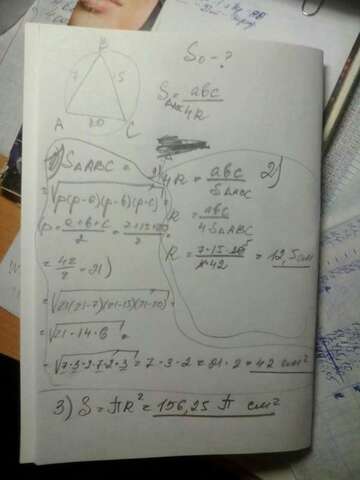 B
7
5
A
20
C
S₀ - ?
S△ABC = abc / 4R
1) S△ABC =
= √p(p-a)(p-b)(p-c) =
(p = a+b+c / 2 =
= 42 / 2 = 21)
= √21(21-7)(21-15)(21-20) =
= √21·14·6 =
= √7·3·2·7·2·3 = 7·3·2 = 21·2 = 42 см²
2)
4R = abc / S△ABC
R = abc / 4S△ABC
R = = 12,5 см
3) S = πR² = 156,25 π см²